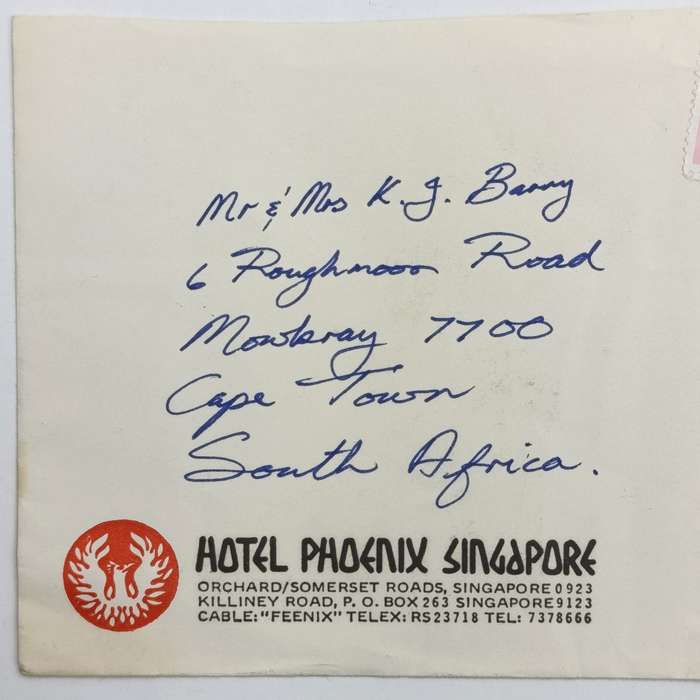 Mr & Mrs K. J. Barry
6 Roughmoor Road
Mowbray 7700
Cape Town
South Africa.
HOTEL PHOENIX SINGAPORE
ORCHARD/SOMERSET ROADS, SINGAPORE 0923
KILLINEY ROAD, P. O. BOX 263 SINGAPORE 9123
CABLE: "FEENIX" TELEX: RS23718 TEL: 7378666